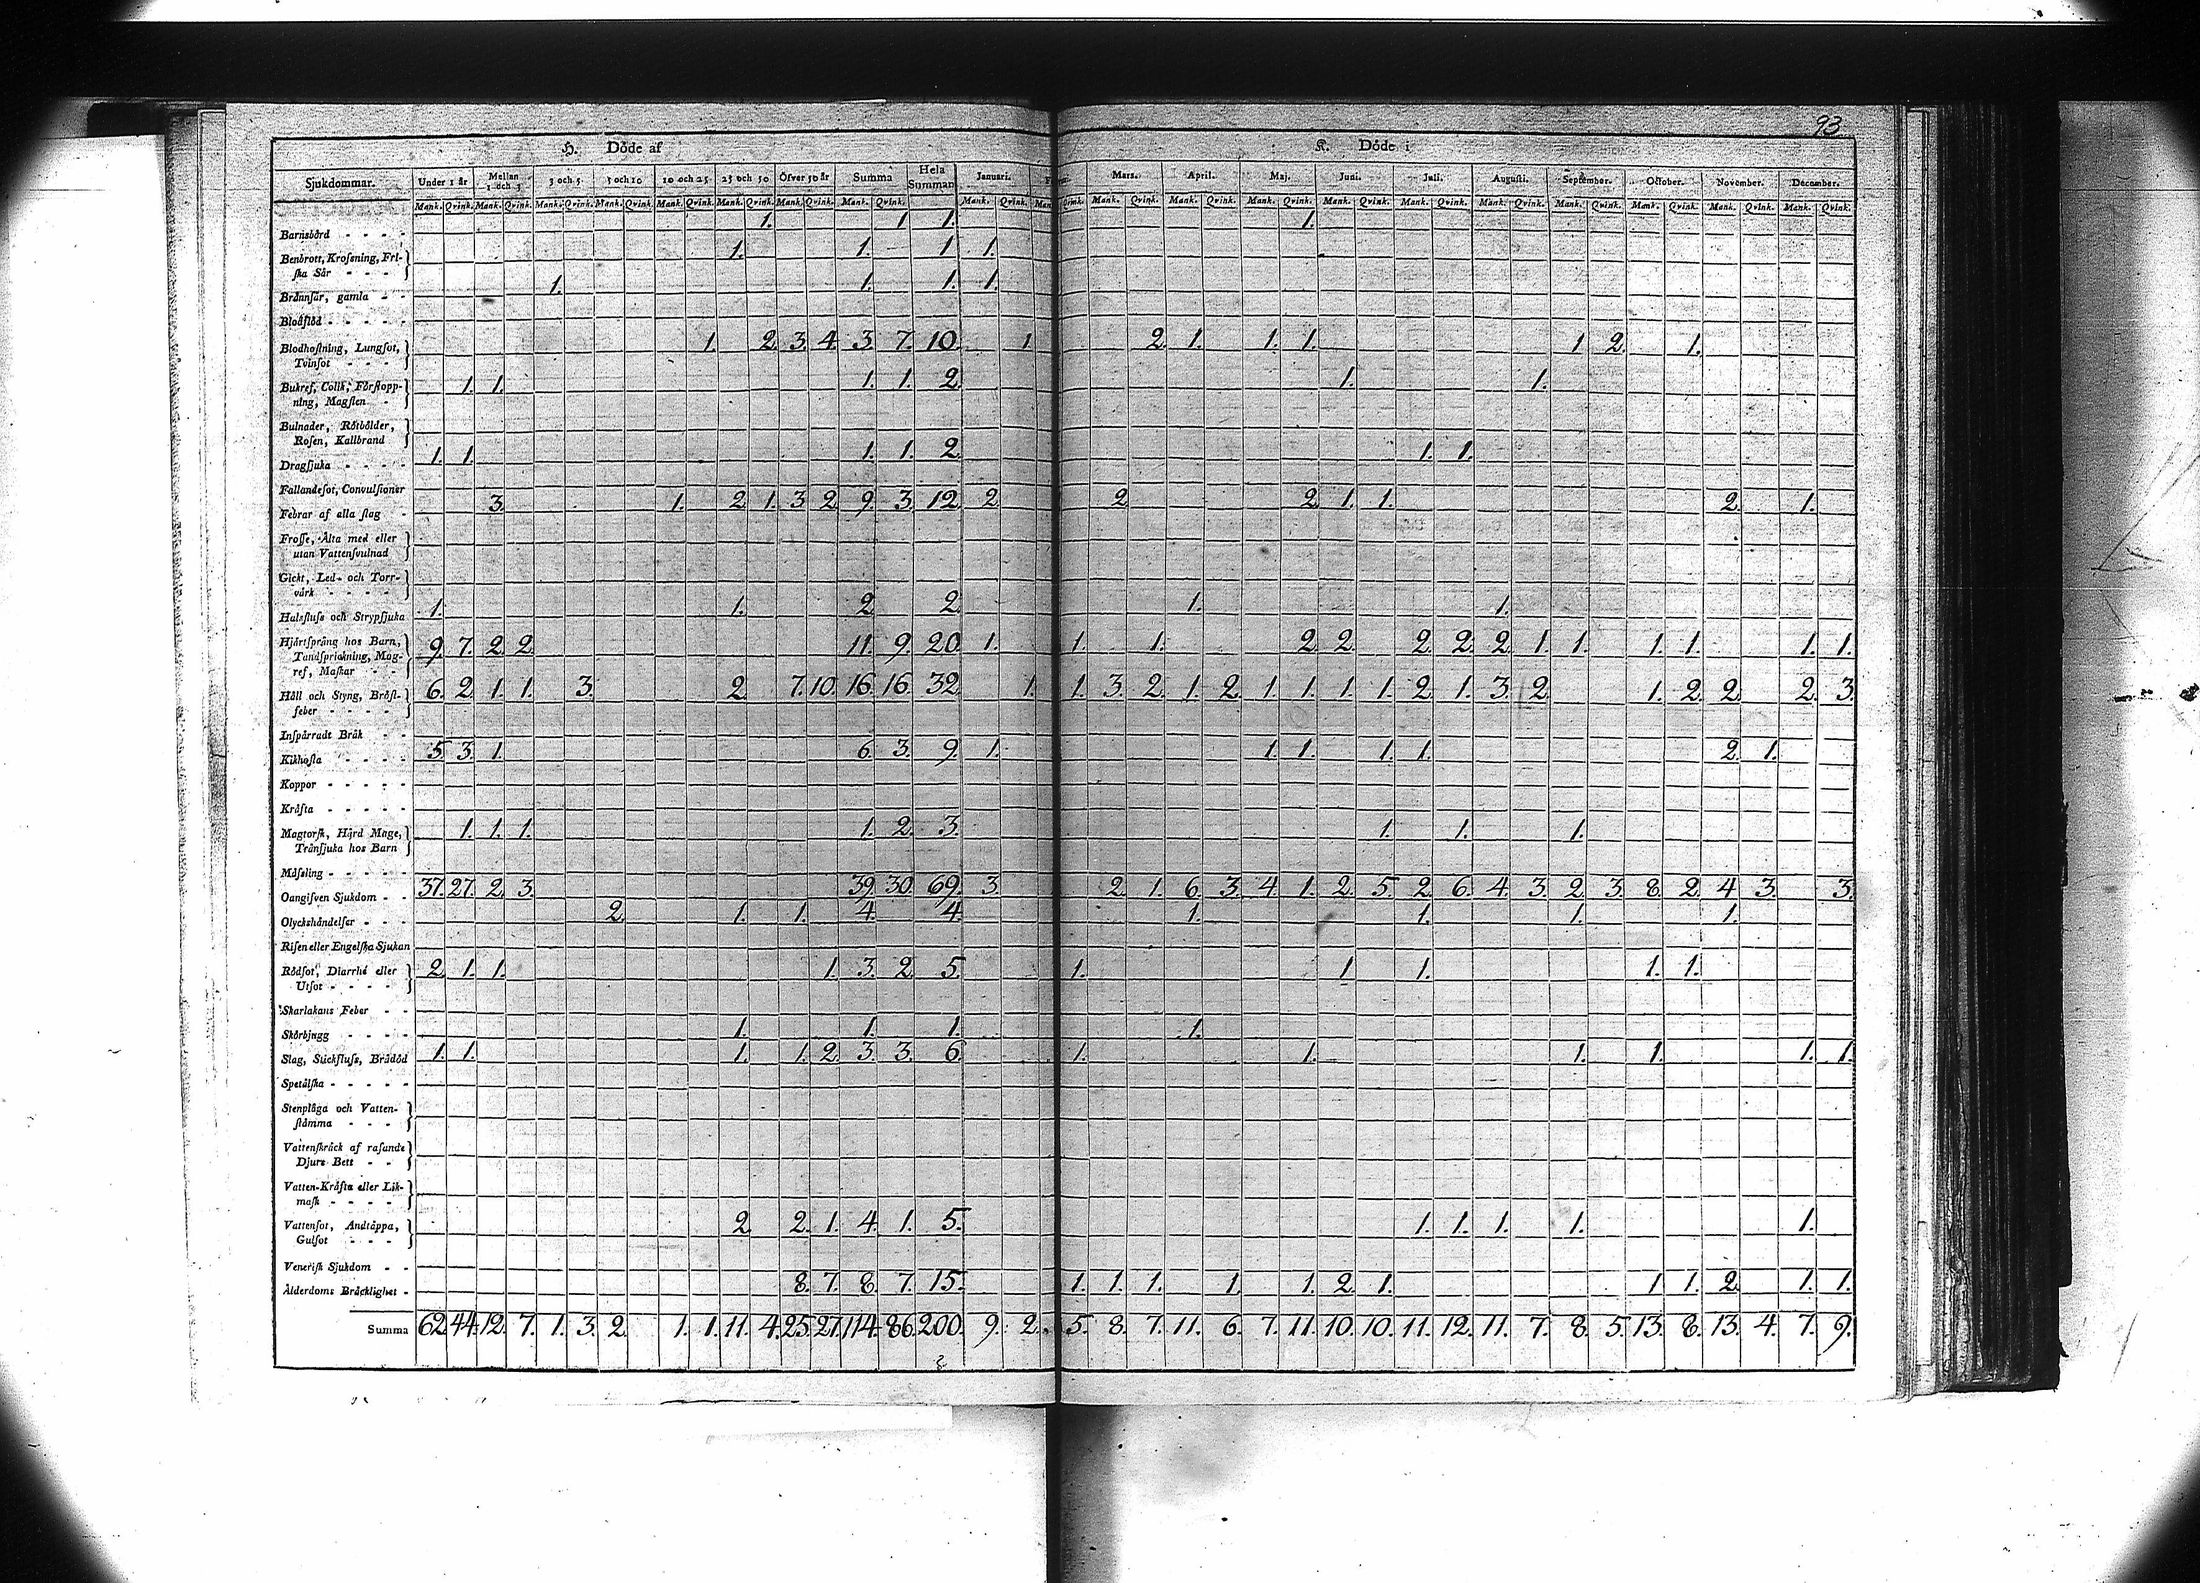 93
H. Döde af K. Döde i
Sjukdommar. Under 1 år Mellan 1 och 3 3 och 5 5 och 10 10 och 25 25 och 50 Öfver 50 år Summa Hela Summan Januari. Mars. April. Maj. Juni. Juli. Augusti. September. October. November. December.
Mank. Qvink. Mank. Qvink. Mank. Qvink. Mank. Qvink. Mank. Qvink. Mank. Qvink. Mank. Qvink. Mank. Qvink. Mank. Qvink. Mank. Qvink. Mank. Qvink. Mank. Qvink. Mank. Qvink. Mank. Qvink. Mank. Qvink. Mank. Qvink. Mank. Qvink. Mank. Qvink. Mank. Qvink. Mank. Qvink.
Barnsbörd - - - - 1. 1 1. 1.
Benbrott, Krossning, Fri-
ska Sår - - - 1. 1. 1 1.
Brännsår, gamla - - 1. 1. 1. 1.
Blodflöd - - - - -
Blodhostning, Lungsot,
Tvinsot - - - 1. 2. 3. 4. 3. 7. 10. 1. 2. 1. 1. 1. 1 2. 1.
Bukref, Colik, Förstopp-
ning, Magsten - 1. 1. 1. 1. 2. 1. 1.
Bulnader, Rötbölder,
Rosen, Kallbrand
Dragsjuka - - - - 1. 1. 1. 1. 2. 1. 1.
Fallandesot, Convulsioner
Febrar af alla slag - 3. 1. 2. 1. 3. 2. 9. 3. 12. 2. 2. 2. 1. 1. 2. 1.
Frossa, Älta med eller
utan Vattensvulnad
Gickt, Led- och Torr-
värk - - - -
Halsfluss och Strypsjuka 1. 1. 2. 2. 1. 1.
Hjärtsprång hos Barn,
Tandsprickning, Mag-
ref, Maskar - - 9. 7. 2. 2. 11. 9. 20. 1. 1. 1. 2. 2. 2. 2. 2. 1. 1. 1. 1. 1. 1.
Håll och Styng, Bröst-
feber - - - - 6. 2. 1. 1. 3. 2. 7. 10. 16. 16. 32. 1. 1. 3. 2. 1. 2. 1. 1. 1. 1. 2. 1. 3. 2. 1. 2. 2. 2. 3.
Inspärradt Bråk - -
Kikhosta - - - - 5. 3. 1. 6. 3. 9. 1. 1. 1. 1. 1. 2. 1.
Koppor - - - - -
Kräfta - - - - -
Magtorsk, Hård Mage,
Trånsjuka hos Barn 1. 1. 1. 1. 2. 3. 1. 1. 1.
Mässling - - - - -
Oangifven Sjukdom - - 37. 27. 2. 3. 39. 30. 69. 3. 2. 1. 6. 3. 4. 1. 2. 5. 2. 6. 4. 3. 2. 3. 8. 2. 4. 3. 3.
Olyckshändelser - - 2. 1. 1. 4. 4. 1. 1. 1. 1.
Risen eller Engelska Sjukan
Rödsot, Diarrhé eller
Utsot - - - - 2. 1. 1. 1. 3. 2. 5. 1. 1 1. 1. 1.
Skarlakans Feber - -
Skörbjugg - - - - 1. 1. 1. 1.
Slag, Stickfluss, Brådöd 1. 1. 1. 1. 2. 3. 3. 6. 1. 1. 1. 1. 1. 1.
Spetälska - - - - -
Stenplåga och Vatten-
stämma - - -
Vattenskräck af rasande
Djurs Bett - -
Vatten-Kräfta eller Lik-
mask - - - -
Vattensot, Andtäppa,
Gulsot - - - 2. 2. 1. 4. 1. 5. 1. 1. 1. 1. 1.
Venerisk Sjukdom - -
Ålderdoms Bräcklighet - 8. 7. 8. 7. 15. 1. 1. 1. 1. 1. 2. 1. 1. 1. 2. 1. 1.
Summa 62. 44. 12. 7. 1. 3. 2. 1. 1. 11. 4. 25. 27. 114. 86. 200. 9. 2. 5. 8. 7. 11. 6. 7. 11. 10. 10. 11. 12. 11. 7. 8. 5. 13. 8. 13. 4. 7. 9.